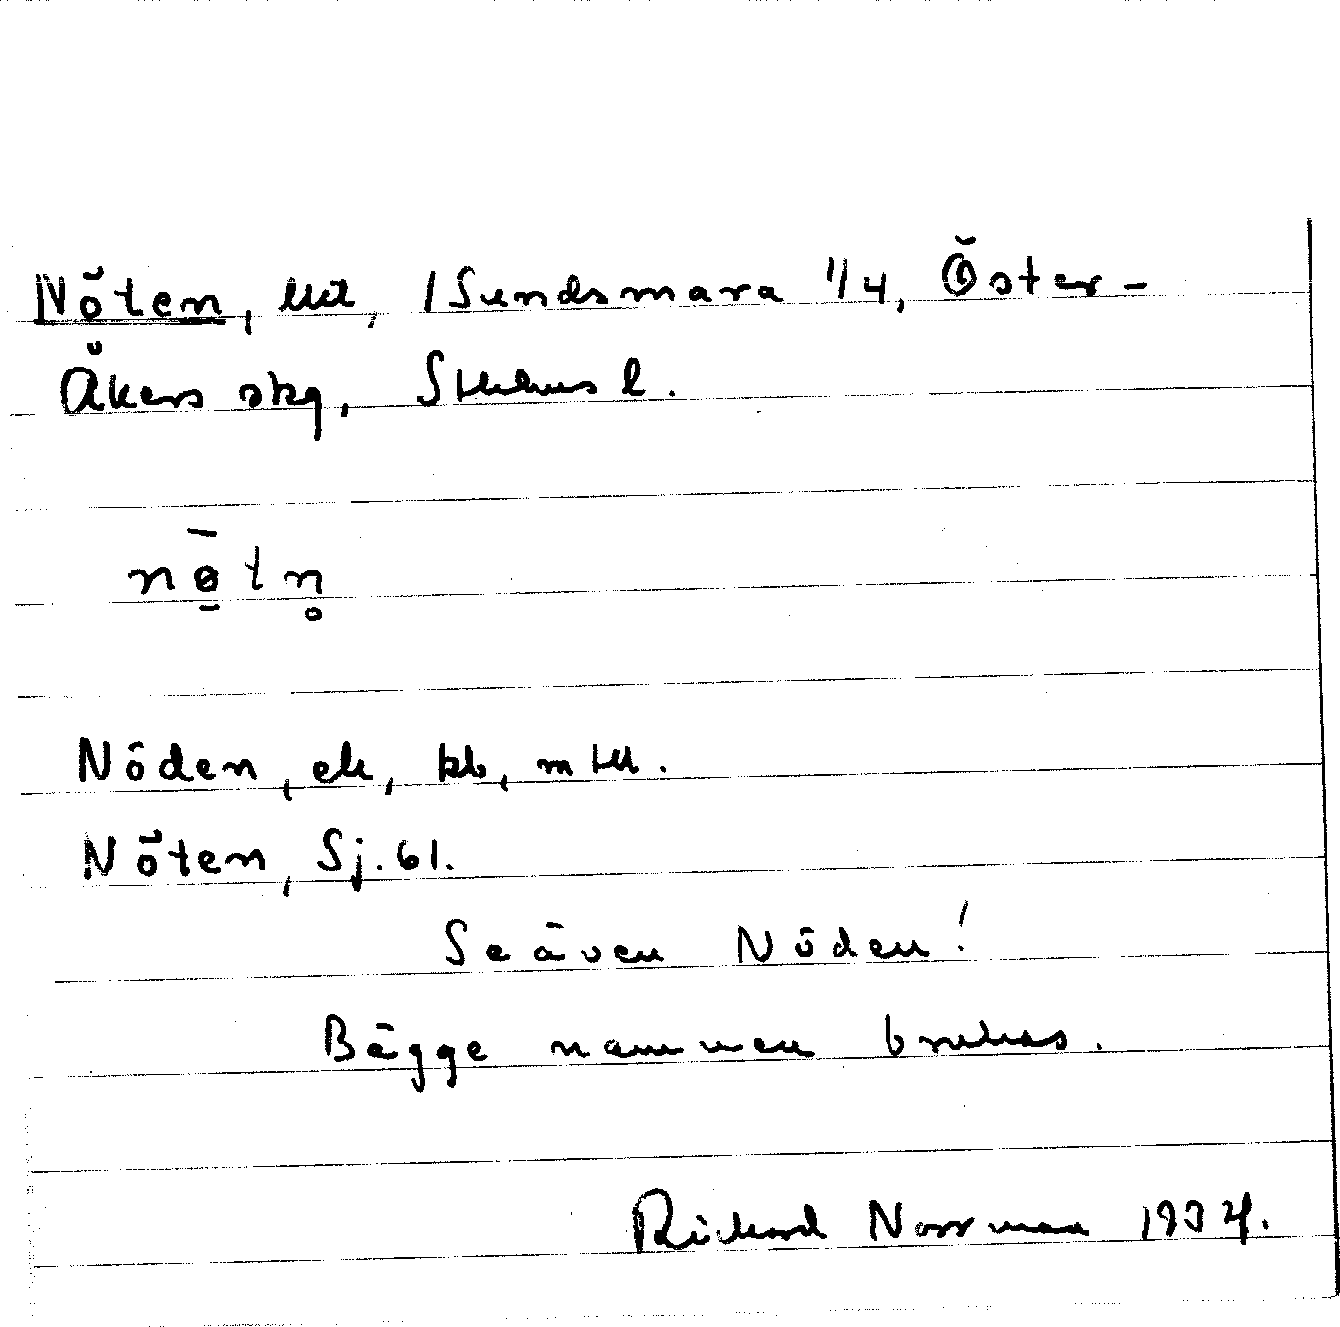 Nöten, utt, /Sundsmara 1/4, Öster-
Åkers skg, Sthlms l.
nø̄tn̥
Nöden, ek, kb, mtbl.
Nöten, Sj. 61.
Se även Nöden!
Bägge namnen brukas.
Richard Norrman 1934.